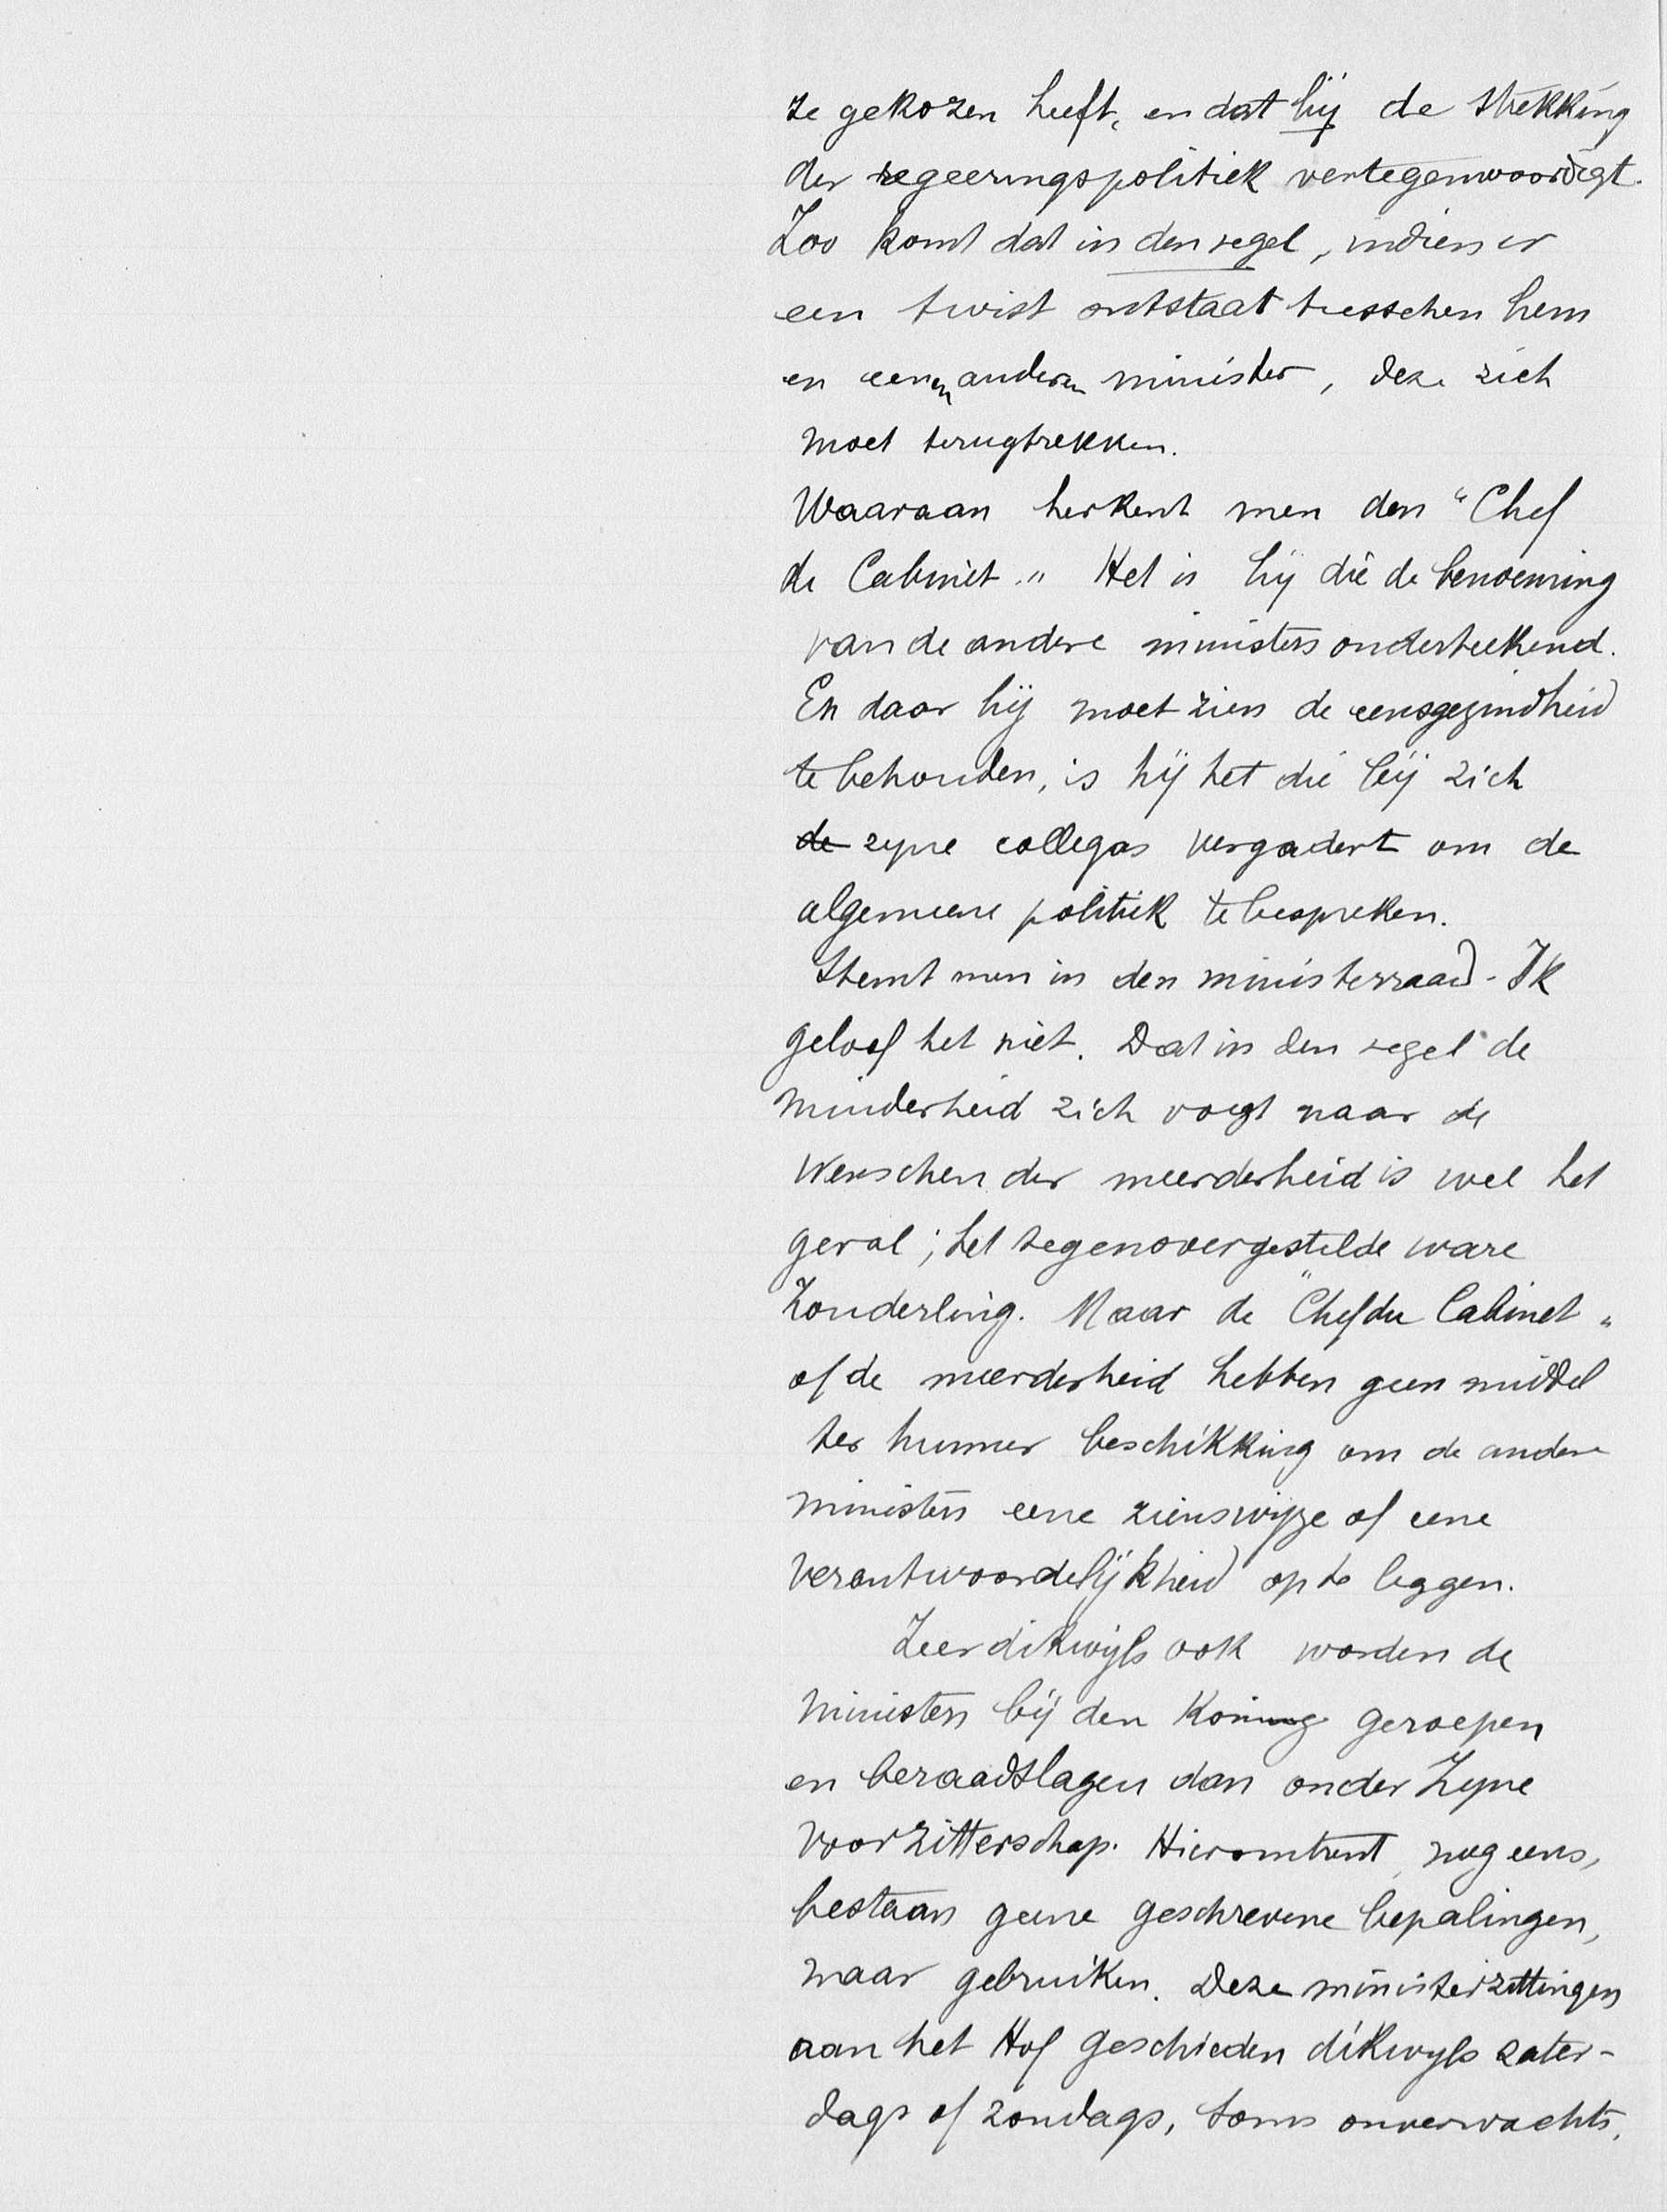 ze gekozen heeft, en dat hij de strekking
der regeeringspolitiek vertegenwoordigt.
Zoo komt dat in den regel, indien er
een twist ontstaat tusschen hem
en eenen anderen minister, deze zich
moet terugtrekken.
Waaraan herkent men den "Chef
de Cabinet." Het is hij die de benoeming
van de andere ministers onderteekend.
En daar hij moet zien de eensgezindheid
te behouden, is hij het die bij zich
de zyne collegas vergadert om de
algemeene politiek te bespreken.
Stemt men in den ministerraad - Ik
geloof het niet. Dat in den regel de
minderheid zich voegt naar de
wenschen der meerderheid is wel het
geval; het tegenovergestelde ware
zonderling. Maar de "Chef du Cabinet"
of de meerderheid hebben geen middel
ter hunner beschikking om de andere
ministers eene zienswijze of eene
verantwoordelijkheid op te leggen.
Zeer dikwijls ook worden de
ministers bij den Koning geroepen
en beraadslagen dan onder Zyne
voorzitterschap. Hieromtrent, nog eens,
bestaan geene geschrevene bepalingen,
maar gebruiken. Deze ministerzittingen
aan het Hof geschieden dikwyls zater-
dags of zondags, soms onverwachts,